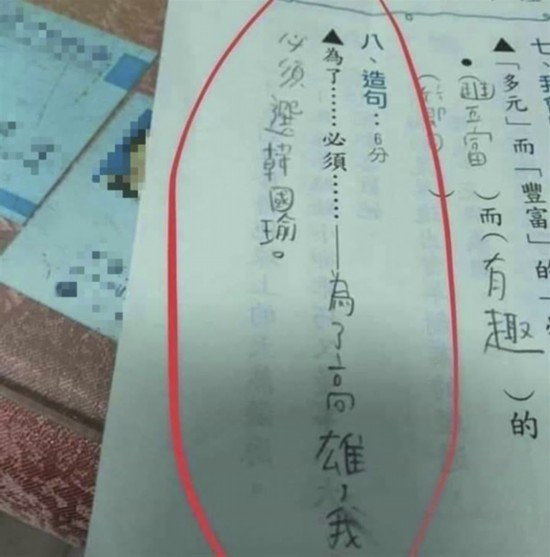 ▲「多元」而「豐富」的
富)而(有趣)的
八、造句：6分
▲為了……必須……——為了高雄，我
必須選韓國瑜。